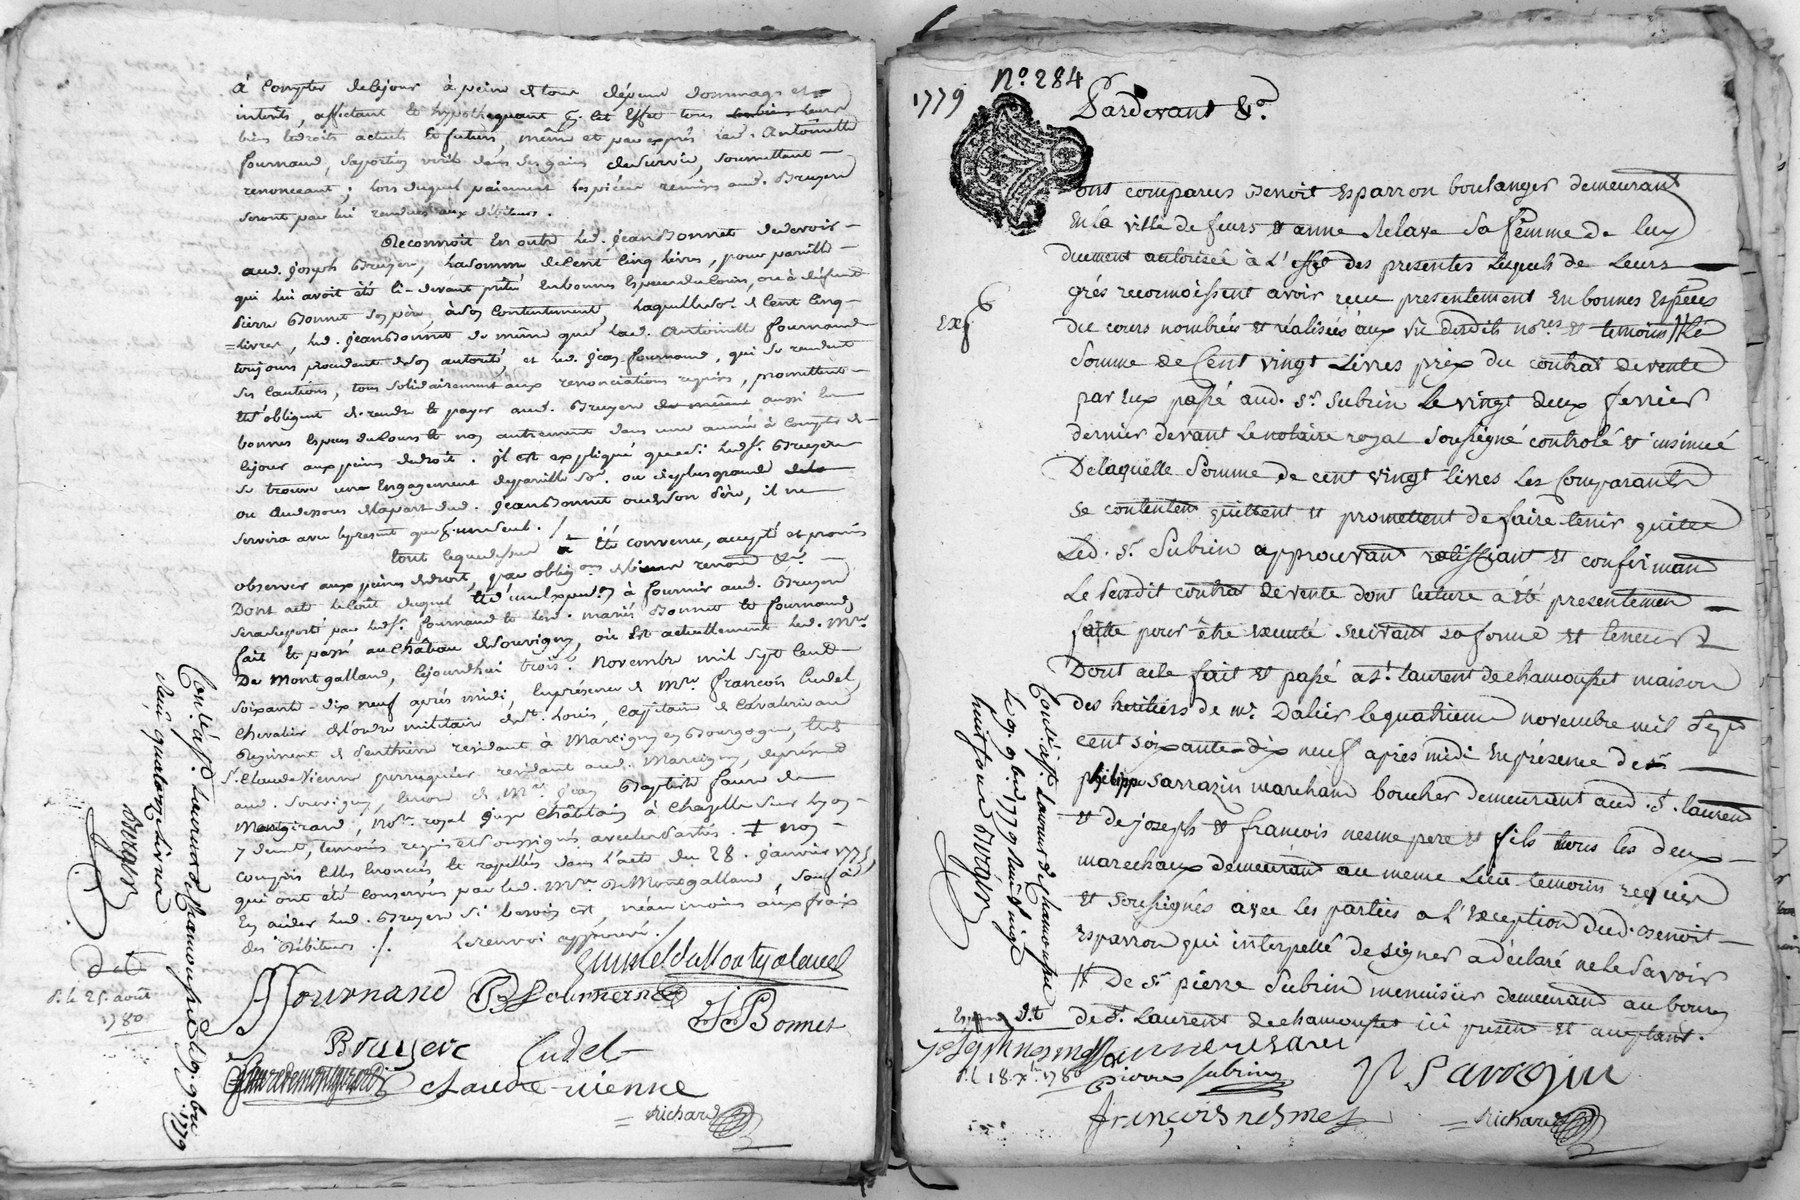 à Compter de ce jour à peine de tous dépens dommages et
interêts, affectant & hypothequant pr. cet effet tous leurs
biens & droits actuels & futurs, même et par exprès lad. Antoinette
fournand, sa portion virile dans ses gains de survie, soumettant
renonceant ; lors duquel paiement les pièces remises aud. Bruyere
seront par lui rendues aux débiteurs.
Reconnoit En outre led. jean Bonnet de devoir
aud. joseph Bruyere, la somme de Cent Cinq livres, pour pareille
qui lui avoit été ci-devant prêté En bonnes Especes du Cours, ou à défunt
Pierre Bonnet son père, à son Contentement, laquelle so. de Cent Cinq
livres, led. jean Bonnet de même que lad. Antoinette fournand
toujours procedant de son autorité, et led. jean fournand, qui se rendent
ses Cautions, tous solidairement aux renonciations requises, promettent
& s'obligent de rendre & payer aud. Bruyere aussi En
bonnes Especes du Cours & non autrement dans une année à Compter de
ce jour aux peines de droit. il est expliqué que si led. Sr. Bruyere
se trouve une Engagement de pareille so. ou de plus grande
ou Audessous de la part dud. jean Bonnet ou de son Père, il ne
servira avec le present que pr. un seul. /
tout lequel dessus a été convenu, accepté et promis
observer aux peines de droit, par oblig.on de biens renond &a.
Dont acte le Coût duquel & d'une Expedon à fournir aud. Bruyere
sera supporté par led. Sr. fournand & led. mariés Bonnet & fournand,
fait & passé au Château de Souvigny, où Est actuellement led. Mre.
De Montgalland, Cejourdhui trois.e novembre mil sept Cent
soixante-dix neuf après midi, En présence de Mre. françois Cudel,
Chevalier de l'ordre militaire de St. Louis, Capitaine de Cavalerie au
Regiment de Penthievre résidant à Marcigny en Bourgogne, & de
Sr. Claude Vienne perruquier résidant aud. Marcigny, de présent
aud. Souvigny, Encore de Mre. jean Baptiste faure de
Montgirard, Nore. royal juge Châtelain à Chazelle sur Lyon
y demt., temoins requis & soussignés avec les parties. ‡ non
Compris Celles Enoncées & rapellées dans l'acte du 28. janvier 1775,
qui ont été Conservées par led. Mre. de Montgalland, sauf à
En aider led. Bruyere si besoin est, néanmoins aux frais
des Débiteurs ./. Le renvoi approuvé. /.
Fournand
J Bonnet
Bruyere Cudel
fauredemontgirard Claude-vienne
= Richard
Conlé. à St. Laurent de Chamousset le 9. 9bre. 1779
Reçu quatorze livres
Duvasor
dt
P. le 25. août
1780
1779 No. 284
Pardevant &a.
ont comparus Benoit Esparron boulanger demeurant
En la ville de feurs & anne Relave Sa femme de luy
duement autorisée à L'effet des presentes Lesquels de Leurs
grés reconnoissent avoir reçu presentement en bonnes Espèces
du cours nombrées & réalisées aux vu desdits nores. & temoins // la
Somme de Cent vingt Livres prix du contrat de vente
par eux passé aud. Sr. Subrin Le vingt deux fevrier
dernier devant Le notaire royal Soussigné controlé & insinué
De laquelle Somme de cent vingt livres Les Comparants
se contentent quittent & promettent de faire tenir quitte
Led. Sr. Subrin approuvant ratiffiant & confirmant
Le Susdit contrat de vente dont lecture a été presentement
faitte pour être executé suivant sa forme & teneur
Dont acte fait & passé a St. Laurent de chamousset maison
des heritiers de Mr. Dalier le quatrieme novembre mil Sept
cent soixante-dix neuf après midi en présence de Sr.
philippe sarrazin marchand boucher demeurant aud. St. laurent
& de joseph & francois nesme pere & fils tous les deux
marechaux demeurant au meme Lieu temoins requis
& soussignés avec les parties a l'exception dud. Benoit
Esparron qui interpellé de signer a déclaré ne le savoir
// De Sr. pierre Subrin menuisier demeurant au bourg
de St. Laurent de chamousset ici present & acceptant.
Joseph nesme
Pierre Subrin P Sarrazin
françois nesme = Richard
Exp.
Conlé. à St. Laurent de Chamousset
le 9. 9bre. 1779 Reçu vingt
huit sous Duvasor
P. l 18. Xbre. 1780